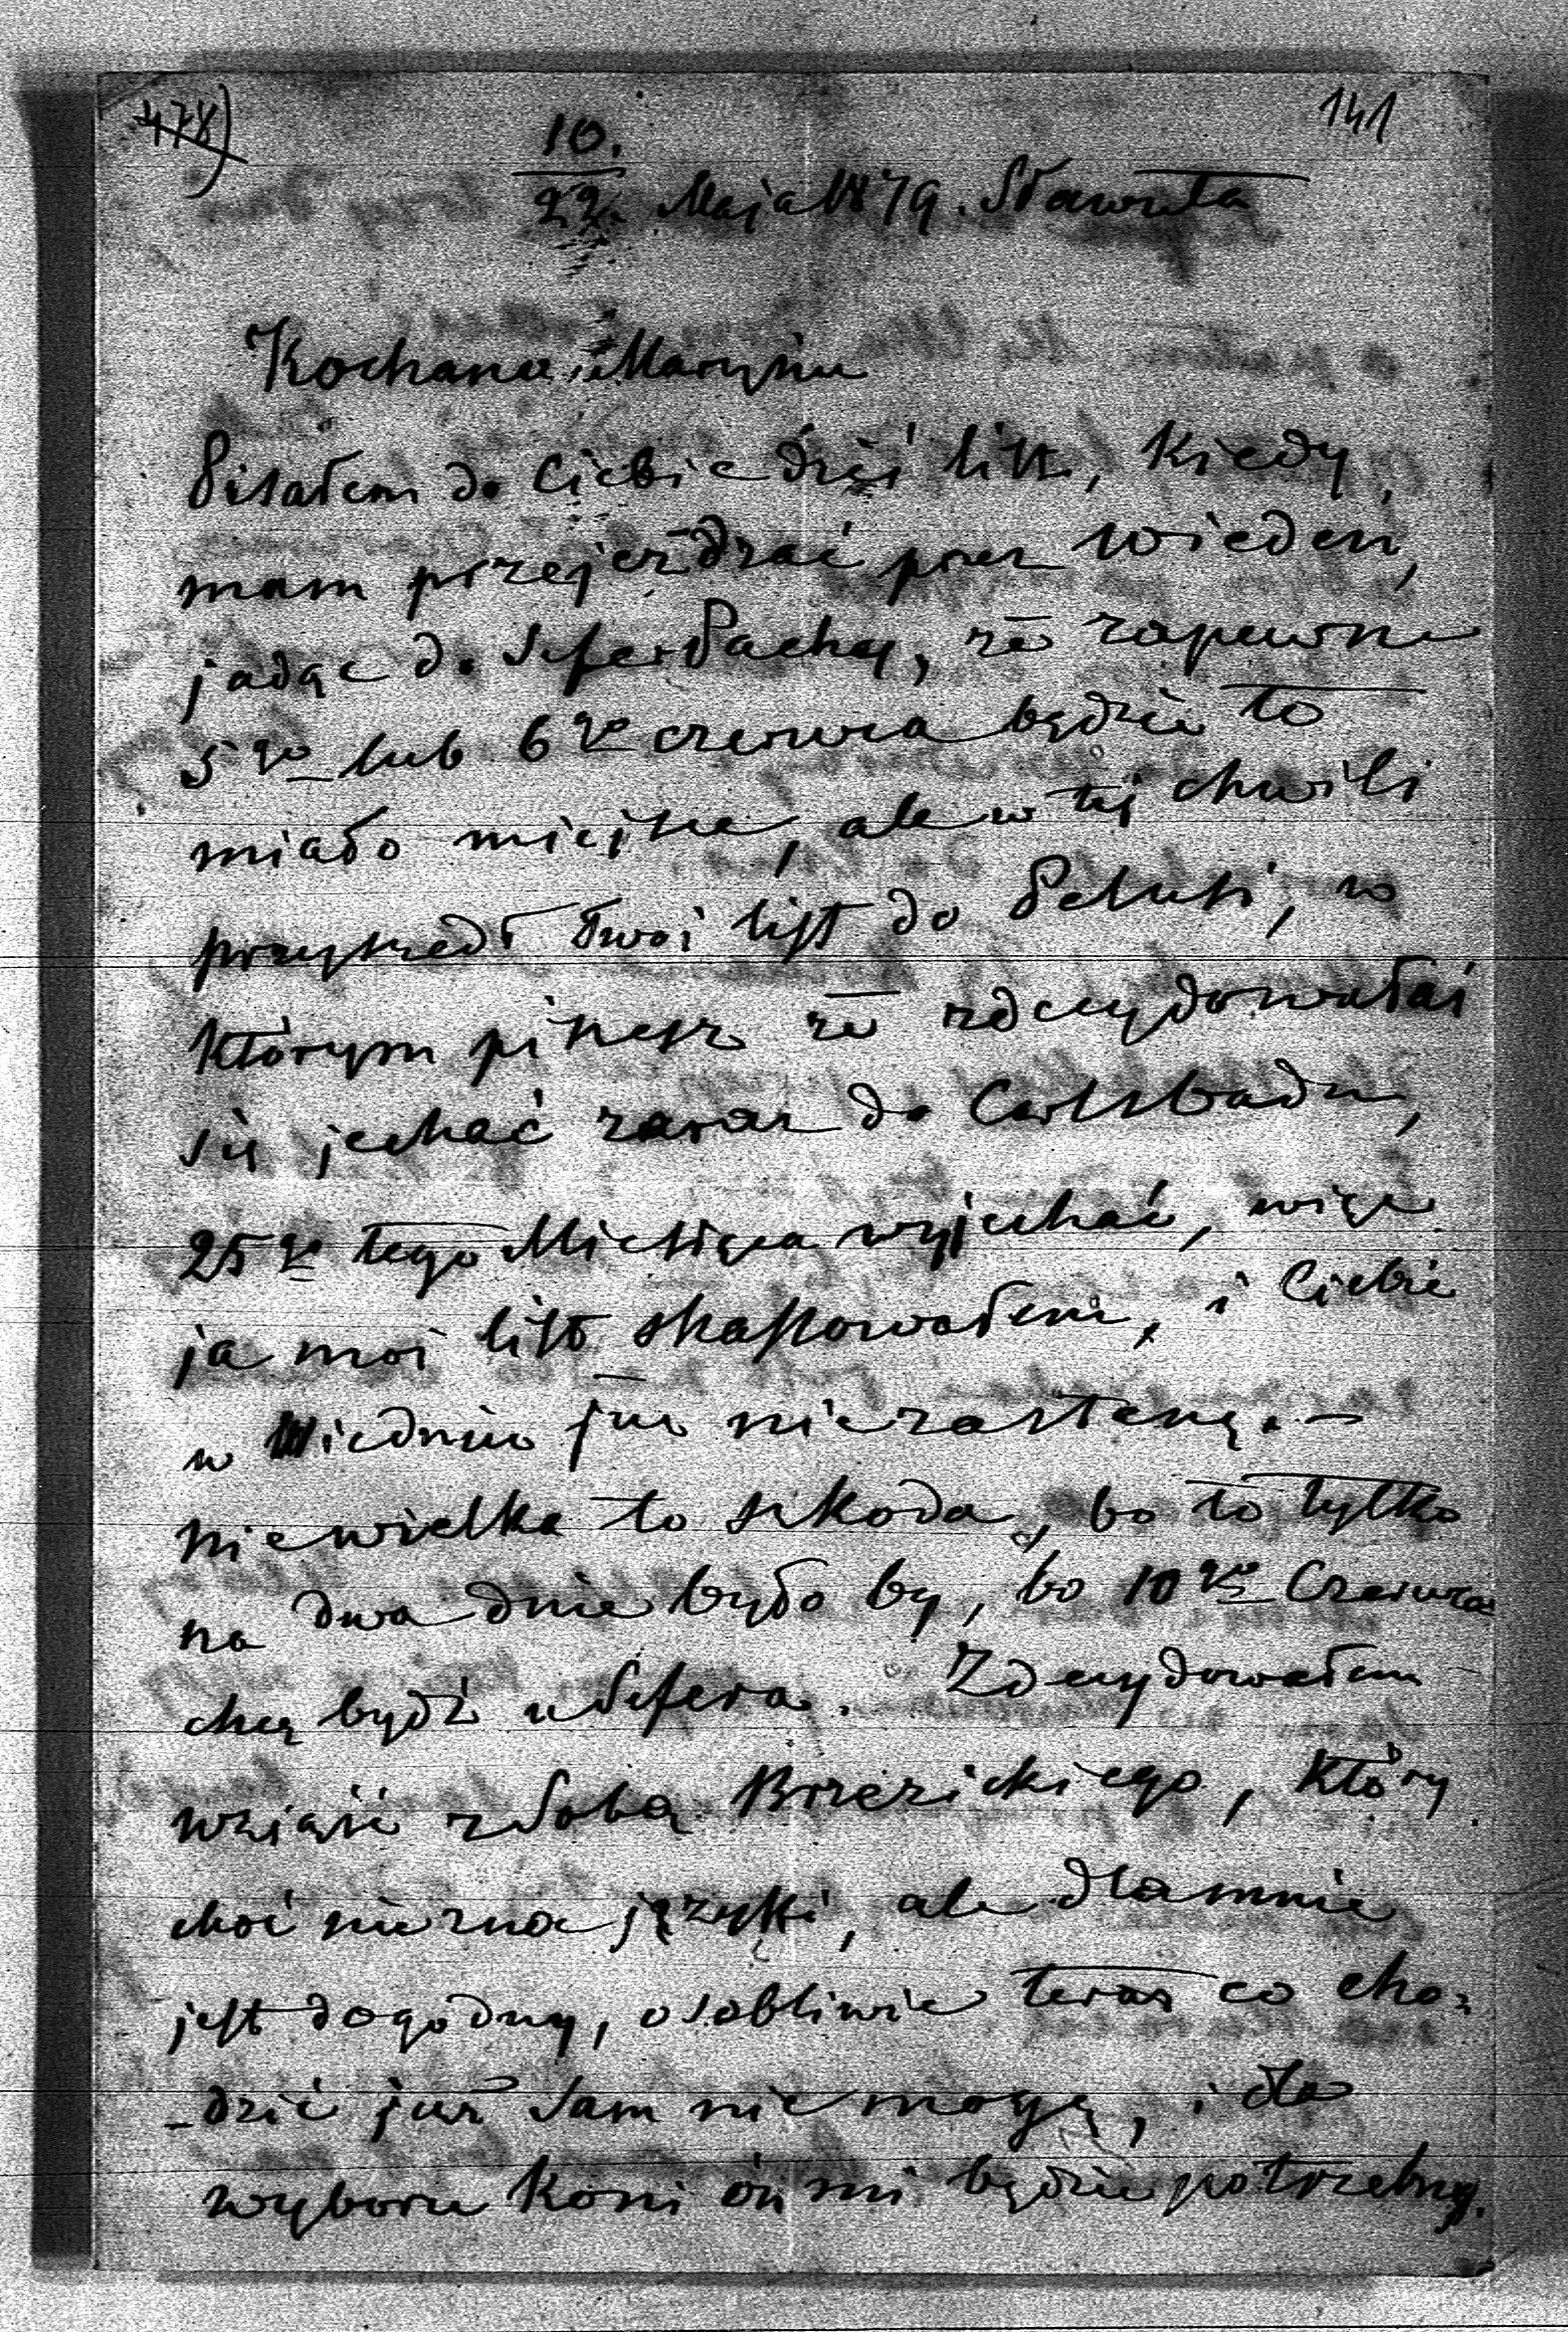 478)
141
10.
22. Maja 1879. Sławuta
Kochana Maryniu
Pisałem do Ciebie dziś list, kiedy
mam przejeżdzać przez Wieden,
jadąc do Sefer Pachy, że zapewne
5go lub 6go czerwca będzie to
miało miejsce, ale w tej chwili
przyszedł Twoi list do Pelusi, w
którym piszesz że zdecydowałaś
się jechać zaraz do Carlsbadu,
25go tego Miesiąca wyjechać, więc
ja moi list skassowałem, i Ciebie
w Wiedniu już niezastanę. —
niewielka to szkoda, bo to tylko
na dwa dnie było by, bo 10go Czerwca
chcę bydź u Sefera. Zdecydowałem
wziąść z sobą Brzezickiego, który
choć nie zna języki, ale dla mnie
jest dogodny, osobliwie teraz co cho-
-dzić już sam nie mogę, i dla
wyboru koni ón mi będzie potrzebny.